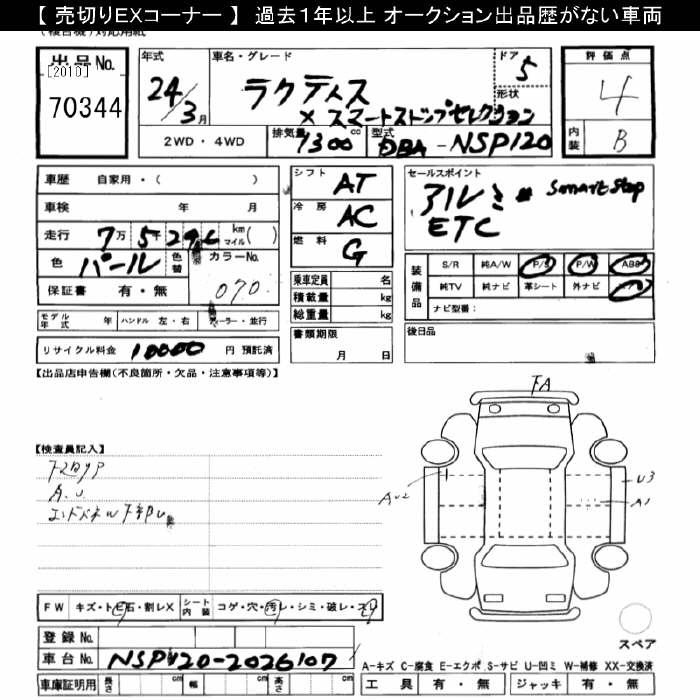 【 売切りEXコーナー 】 過去１年以上 オークション出品歴がない車両
出品No.
[2010]
70344
年式
24/3月
車名・グレード
ラクティス
× スマートストップセレクション
ドア
5
形状
評価点
4
内装
B
2WD ・ 4WD
排気量
1300cc
型式
DBA-NSP120
車歴 自家用・( )
車検 年 月
走行 7万5千 km マイル ( )
色 パール 色替 カラーNo.
070
保証書 有・無
モデル年式 年 ハンドル 左・右 ディーラー・並行
リサイクル料金 10000 円 預託済
シフト AT
冷房 AC
燃料 G
乗車定員 名
積載量 kg
総重量 kg
書類期限
月 日
セールスポイント
アルミ Smart Stop
ETC
装備品
S/R 純A/W P/S P/W ABS
純TV 純ナビ 革シート 外ナビ
ナビ型番:
後日品
【出品店申告欄(不良箇所・欠品・注意事項等)】
【検査員記入】
A.U
FA
AU2
U3
A1
FW キズ・トビ石・割レX シート内装 コゲ・穴・汚レ・シミ・破レ・スレ
登録No.
車台No. NSP120-2026107
車庫証明用 長さ cm 幅 cm 高さ cm
スペア
A-キズ C-腐食 E-エクボ S-サビ U-凹ミ W-補修 XX-交換済
工具 有・無 ジャッキ 有・無